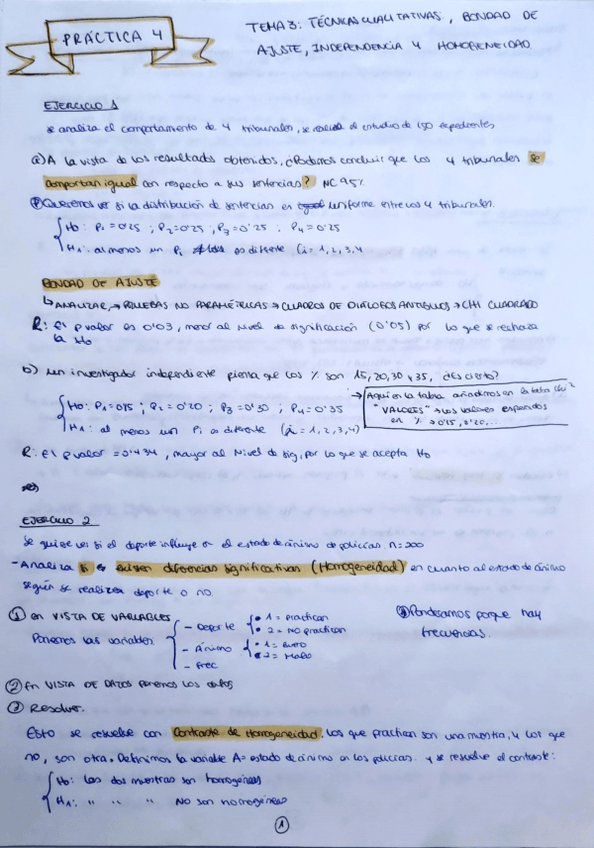 PRÁCTICA 4
TEMA 3: TÉCNICAS CUALITATIVAS, BONDAD DE
AJUSTE, INDEPENDENCIA Y HOMOGENEIDAD
EJERCICIO 1
se analiza el comportamiento de 4 tribunales, se realiza el estudio de 150 expedientes
a) A la vista de los resultados obtenidos, ¿Podemos concluir que los 4 tribunales se
comportan igual con respecto a sus sentencias? NC 95%
Queremos ver si la distribución de sentencias es uniforme entre los 4 tribunales.
H0: P1 = 0'25 ; P2 = 0'25 , P3 = 0'25 . P4 = 0'25
H1: al menos un Pi es diferente (i = 1, 2, 3, 4
BONDAD DE AJUSTE
↳ ANALIZAR → PRUEBAS NO PARAMÉTRICAS → CUADROS DE DIÁLOGOS ANTIGUOS → CHI CUADRADO
R: el p valor es 0'03, menor al nivel de significación (0'05) por lo que se rechaza
la H0
b) un investigador independiente piensa que los % son 15, 20, 30 y 35, ¿es cierto?
→ Aquí en la tabla añadimos en la tabla Chi²
"VALORES" → los valores esperados
en % → 0'15, 0'20,...
H0: P1 = 015 ; P2 = 0'20 ; P3 = 0'30 ; P4 = 0'35
H1: al menos un Pi es diferente (i = 1, 2, 3, 4)
R: el p valor = 0'434, mayor al Nivel de sig, por lo que se acepta H0
EJERCICIO 2
Se quiere ver si el deporte influye en el estado de ánimo de policías n=200
- Analiza si existen diferencias significativas (Homogeneidad) en cuanto al estado de ánimo
según se realiza deporte o no.
① en VISTA DE VARIABLES
Ponemos las variables
- Deporte
• 1 = Practican
• 2 = No practican
- Ánimo
• 1 = Bueno
• 2 = Malo
- Frec
Ponderamos porque hay
frecuencias.
② En VISTA DE DATOS ponemos los datos
③ Resolver.
Esto se resuelve con Contraste de Homogeneidad, los que practican son una muestra, y los que
no, son otra. Definimos la variable A = estado de ánimo en los policías. y se resuelve el contraste:
H0: Las dos muestras son homogéneas
H1: " " " No son homogéneas
1